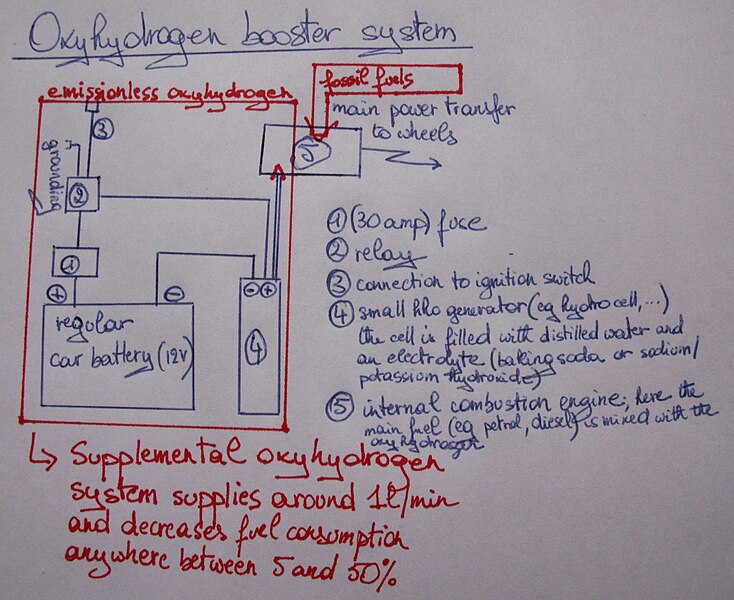 Oxyhydrogen booster system
emissionless oxyhydrogen
fossil fuels
main power transfer
to wheels
3
5
grounding
2
1
+ -
- +
regular
car battery (12V)
4
1 (30 amp) fuse
2 relay
3 connection to ignition switch
4 small HHO generator (eg hydrocell, ...)
the cell is filled with distilled water and
an electrolyte (baking soda or sodium/
potassium hydroxide)
5 internal combustion engine; here the
main fuel (eg petrol, diesel) is mixed with the
oxyhydrogen
↳ Supplemental oxyhydrogen
system supplies around 1l/min
and decreases fuel consumption
anywhere between 5 and 50%